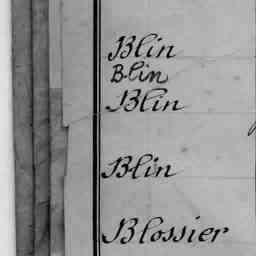 Blin
Blin
Blin
Blin
Blossier